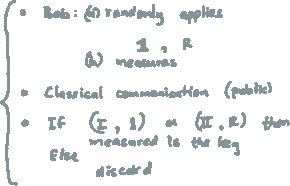 • Bob: (a) randomly applies
𝟙, R
(b) measures
• Classical communication (public)
• If (I, 1) or (II, R) then
measured is the key
Else
discard